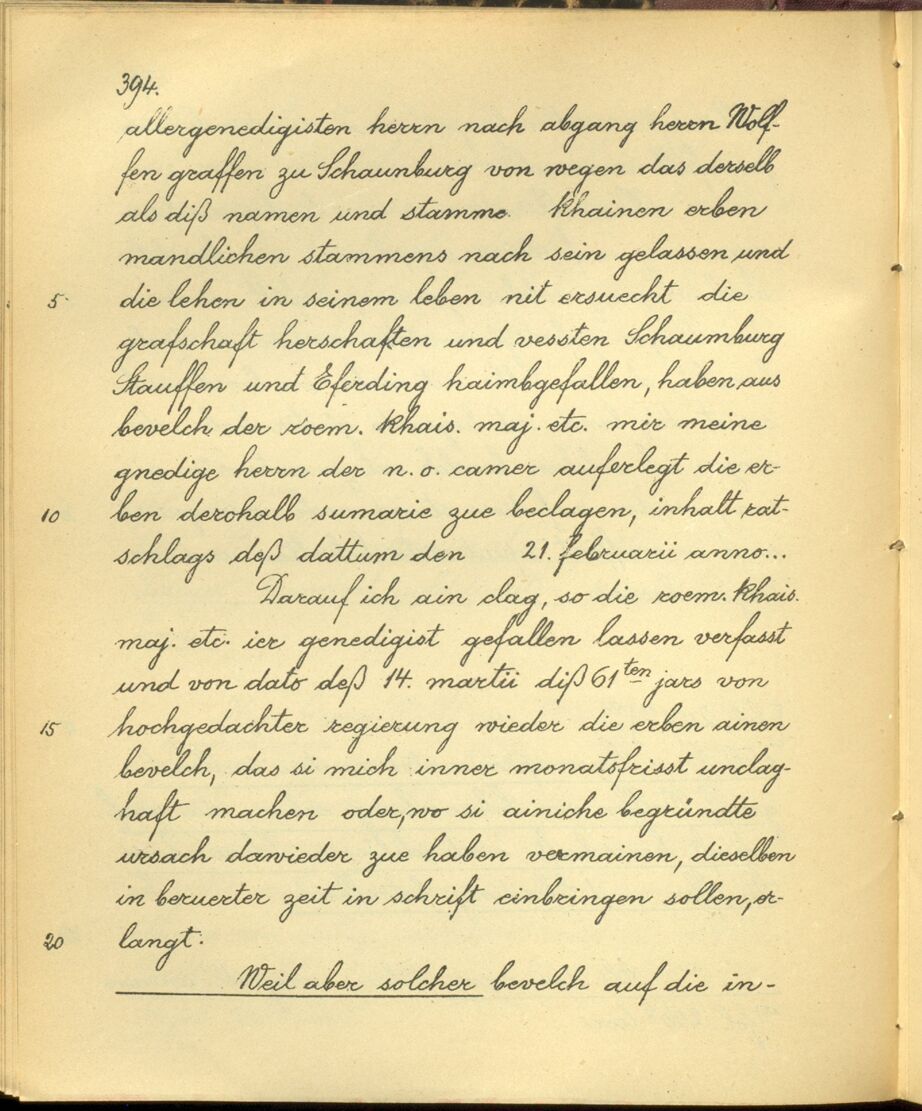 394.
allergenedigisten herrn nach abgang herrn Wolf-
fen graffen zu Schaunburg von wegen das derselb
als diß namen und stamms khainen erben
mandlichen stammens nach sein gelassen und
5 die lehen in seinem leben nit ersuecht die
grafschaft herschaften und vessten Schaumburg
Stauffen und Eferding haimbgefallen, haben aus
bevelch der roem. khais. maj. etc. mir meine
gnedige herrn der n. o. camer auferlegt die er-
10 ben derohalb sumarie zue beclagen, inhalt rat-
schlags deß dattum den 21. februarii anno...
Darauf ich ain clag, so die roem. khais.
maj. etc. ier genedigist gefallen lassen verfasst
und von dato deß 14. martii diß 61ten jars von
15 hochgedachter regierung wieder die erben ainen
bevelch, das si mich inner monatsfrisst unclag-
haft machen oder, wo si ainiche begründte
ursach dawieder zue haben vermainen, dieselben
in beruerter zeit in schrift einbringen sollen, er-
20 langt.
Weil aber solcher bevelch auf die in-